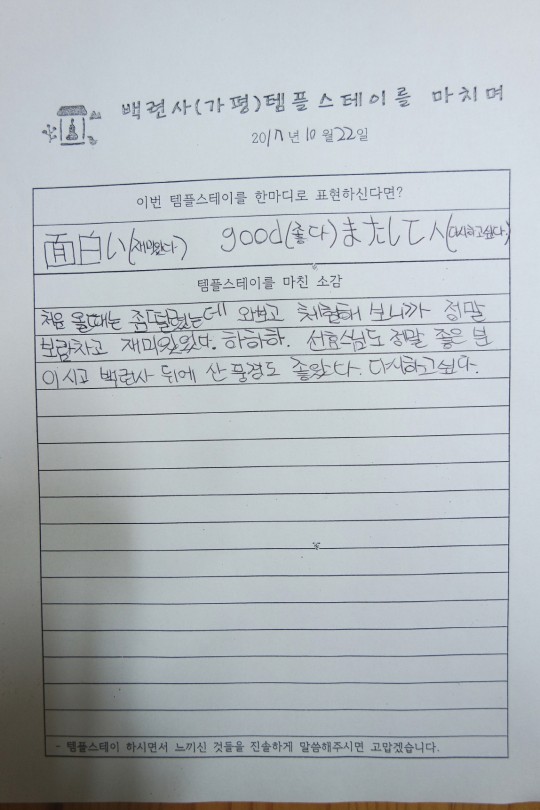 백련사(가평)템플스테이를 마치며
2017년 10월 22일
이번 템플스테이를 한마디로 표현하신다면?
面白い(재미있다.) good(좋다) またして人(다시하고싶다.)
템플스테이를 마친 소감
처음 올때는 좀떨렸는데 와보고 체험해 보니까 정말
보람차고 재미있었다. 하하하. 선효스님도 정말 좋은 분
이시고 백련사 뒤에 산 풍경도 좋았다. 다시하고싶다.
- 템플스테이 하시면서 느끼신 것들을 진솔하게 말씀해주시면 고맙겠습니다.